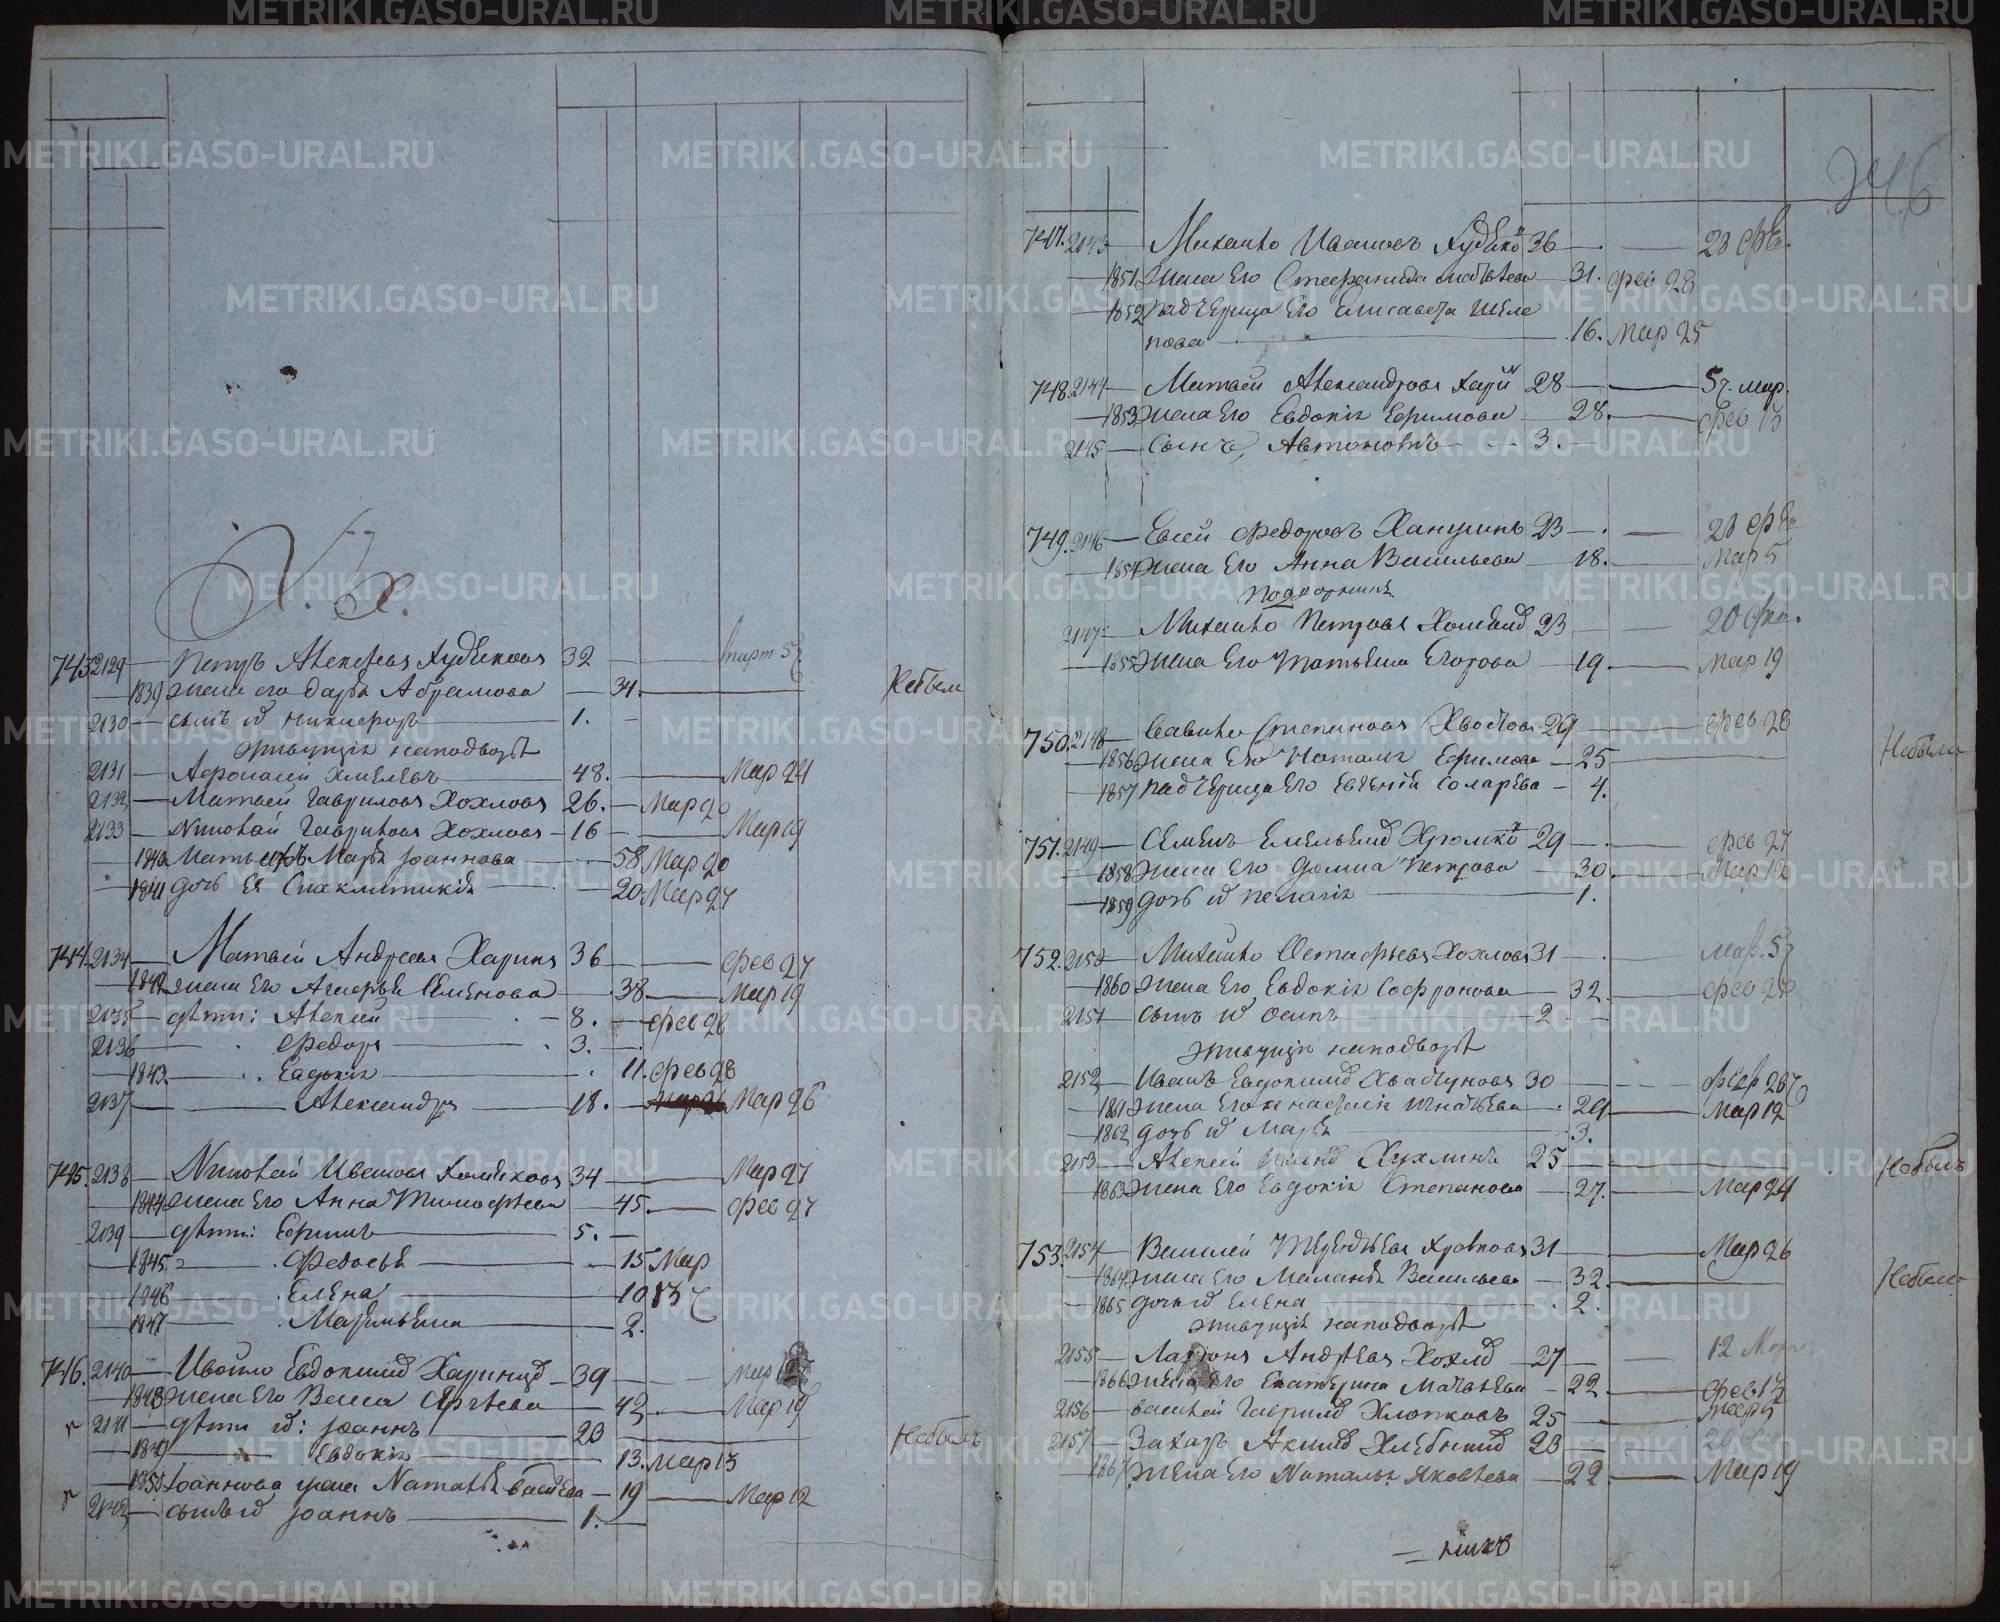 Х. х.
743. 2129 — Петръ Алексѣевъ Худяковъ 32 — — март 5
— 1839 жена его Дарья Абрамова — 34. — Небыла
2130 — сынъ их Никифоръ — 1. —
живущія наподворьѣ
2131 — Афонасей Хмелевъ — 48. — Мар 24
2132 — Матвей Гавриловъ Хохловъ 26. — Мар 20
2133 — Николай Гавриловъ Хохловъ — 16 — Мар 19
— 1840 Мать ихъ Марья Іоаннова — 58 Мар 20
— 1841 дочь Ея Синклитикія — 20 Мар 27
744. 2134 — Матвей Андреевъ Харинъ 36 — — Фев 27
— 1842 жена Его Агафья Семенова — 38 — Мар 19
2135 — дѣти: Алексей — 8. — Фев 28
2136 — Федоръ — 3. —
— 1843 — Евдокія — 11. Фев 28
2137 — Александръ — 18. — Мар 26
745. 2138 — Николай Ивановъ 34 — Мар 27
— 1844 жена Его Анна Тимофѣева — 45. — Фев 27
2139 — дѣти: Ефимъ — 5. —
— 1845 — Федосья — 15 Мар
— 1846 — Елена — 10 13
— 1847 — Маремьяна — 2.
746. 2140 — Евдокимов 39 — — Мар 12
— 1848 жена Его Васса — 42 — Мар 19
2141 — дѣти их: Іоаннъ — 23 — Небылъ
— 1849 — Евдокія — 13. Мар 13
— 1850 Іоаннова жена Наталья Васильева — 19 — Мар 12
2142 — сынъ их Іоаннъ — 1. —
246
747. 2143 — Михайло Ивановъ Худяков 36 — . — 28 Фев.
— 1851 Жена Его Стефанида Матвѣева — 31. Фев 28
— 1852 падчерица Его Елисавета Шеле
пова — 16. Мар 25
748. 2144 — Матвей Александровъ Харин 28 — — 5 мар.
— 1853 жена Его Евдокія Ефимова — 28. — Фев 13
2145 — Сынъ, Автономъ — 3. —
749. 2146 — Евсей Федоровъ Ханунинъ 23 — . — 28 Фев
— 1854 жена Его Анна Васильева — 18. — Мар 5
2147 — Михайло Петровъ 23 — — 20 Фев.
— 1855 жена Его Татьяна Егорова — 19. — Мар 19
750. 2148 — Савило Степановъ Хвостовъ 29 — Фев 28
— 1856 жена Его Наталья Ефимова — 25 — Небыли
— 1857 падчерица Его Евгенія — 4.
751. 2149 — Семенъ Емельянов Хромков 29 — . — Фев 27
— 1858 жена Его Домна Петрова — 30. — Мар 12
— 1859 дочь их Пелагія — 1.
752. 2150 — Михайло Остафьевъ Хохловъ 31 — . — Мар. 5
— 1860 жена Его Евдокія Софронова — 32. — Фев 27
2151 — сынъ их Осипъ — 2 —
живущія наподворьѣ
2152 — Иванъ Евдокимов 30 — — Фев 26
— 1861 жена Его Анастасія Игнатьева — 29 — Мар 12
— 1862 дочь их Марья — 3.
2153 — Алексей Иванов Хухлинъ 25 — — Небылъ
— 1863 жена Его Евдокія Степанова — 27. — Мар 24
753. 2154 — Василей Терентьевъ 31 — — Мар 26
— 1864 жена Его Маланья Васильева — 32. — Небыла
— 1865 дочь их Елена — 2.
живущія наподворьѣ
2155 — Ларіонъ Андрѣевъ Хохлов — 27 — — 12 Мар
— 1866 жена Его Екатерина Матвѣева — 22. — Фев 13
2156 — Василей Гаврилов Хлопковъ 25 —
2157 — Захаръ Акимов Хлебников 23 —
— 1867 жена Его Наталья Яковлева — 22 — Мар 19